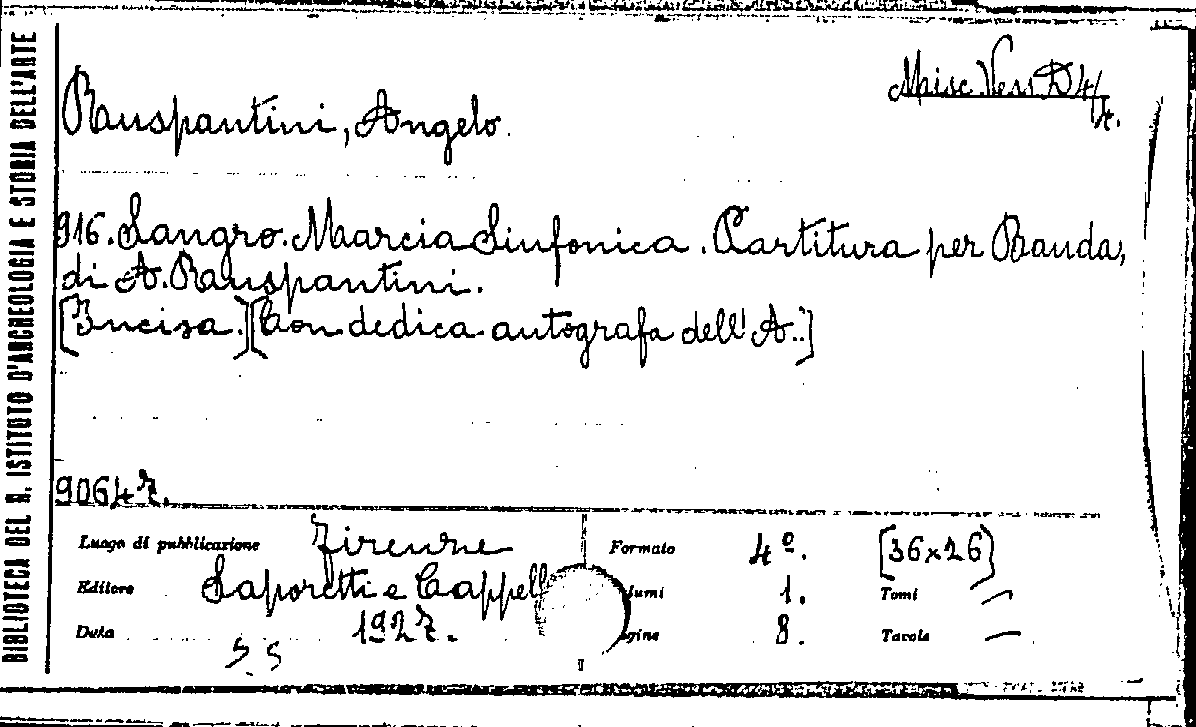 BIBLIOTECA DEL R. ISTITUTO D'ARCHEOLOGIA E STORIA DELL'ARTE
Misc. Vess D 4/4.
Rauspantini, Angelo.
916. Sangro. Marcia Sinfonica. Partitura per Banda,
di A. Rauspantini.
[Incisa.][Con dedica autografa dell'A..]
90647.
Luogo di pubblicazione Firenze Formato 4º. [36×26]
Editore Saporetti e Cappell lumi 1. Tomi —
Data 1927. gine 8. Tavole —